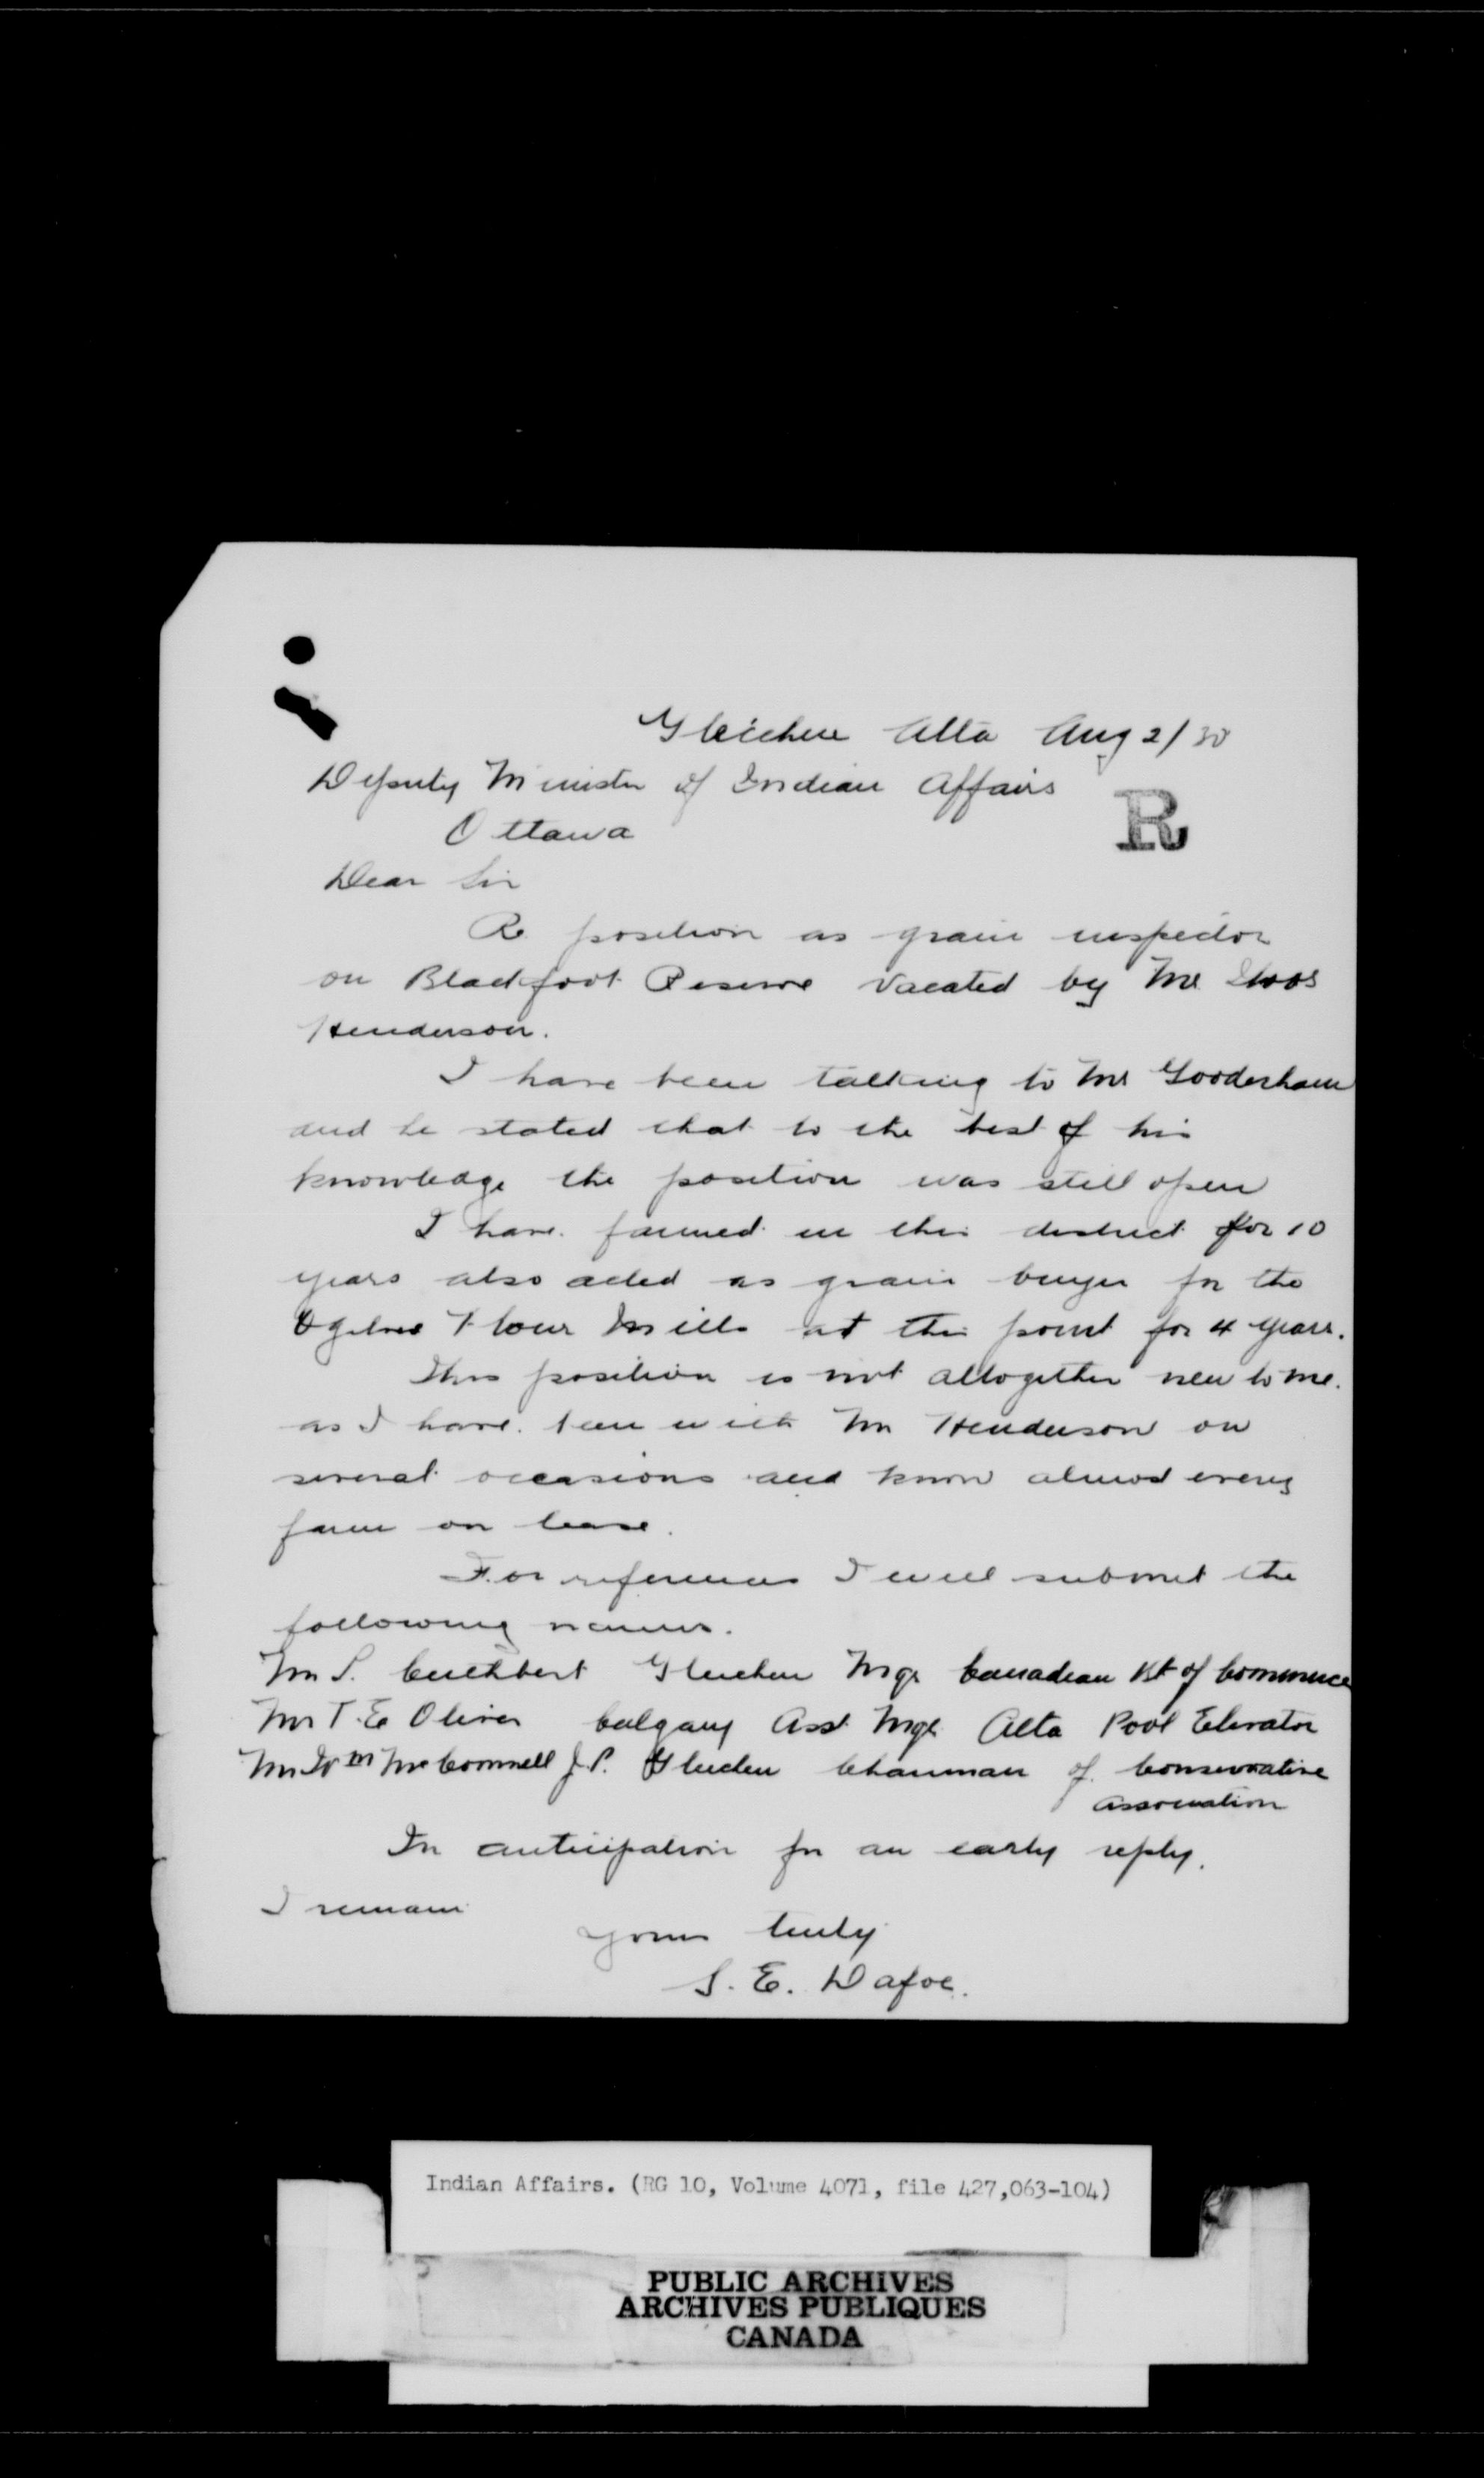 Gleichen Alta Aug 2/30
Deputy Minister of Indian Affairs
R
Ottawa
Dear Sir
Re position as grain inspector
on Blackfoot Reserve vacated by Mr Thos
Henderson.
I have been talking to Mr Gooderham
and he stated that to the best of his
knowledge the position was still open
I have farmed in this district for 10
years also acted as grain buyer for the
Ogilvie Flour Mills at this point for 4 years.
This position is not altogether new to me.
as I have been with Mr Henderson on
several occasions and know almost every
farm on lease.
For references I will submit the
following names.
Mr S. Cuthbert Gleichen Mgr Canadian Bk of Commerce
Mr T. E Oliver Calgary Asst Mgr Alta Pool Elevator
Mr Wm McConnell J.P. Gleichen Chairman of Conservative
Association
In anticipation for an early reply.
I remain
yours truly
S. E. Dafoe.
Indian Affairs. (RG 10, Volume 4071, file 427,063-104)
PUBLIC ARCHIVES
ARCHIVES PUBLIQUES
CANADA